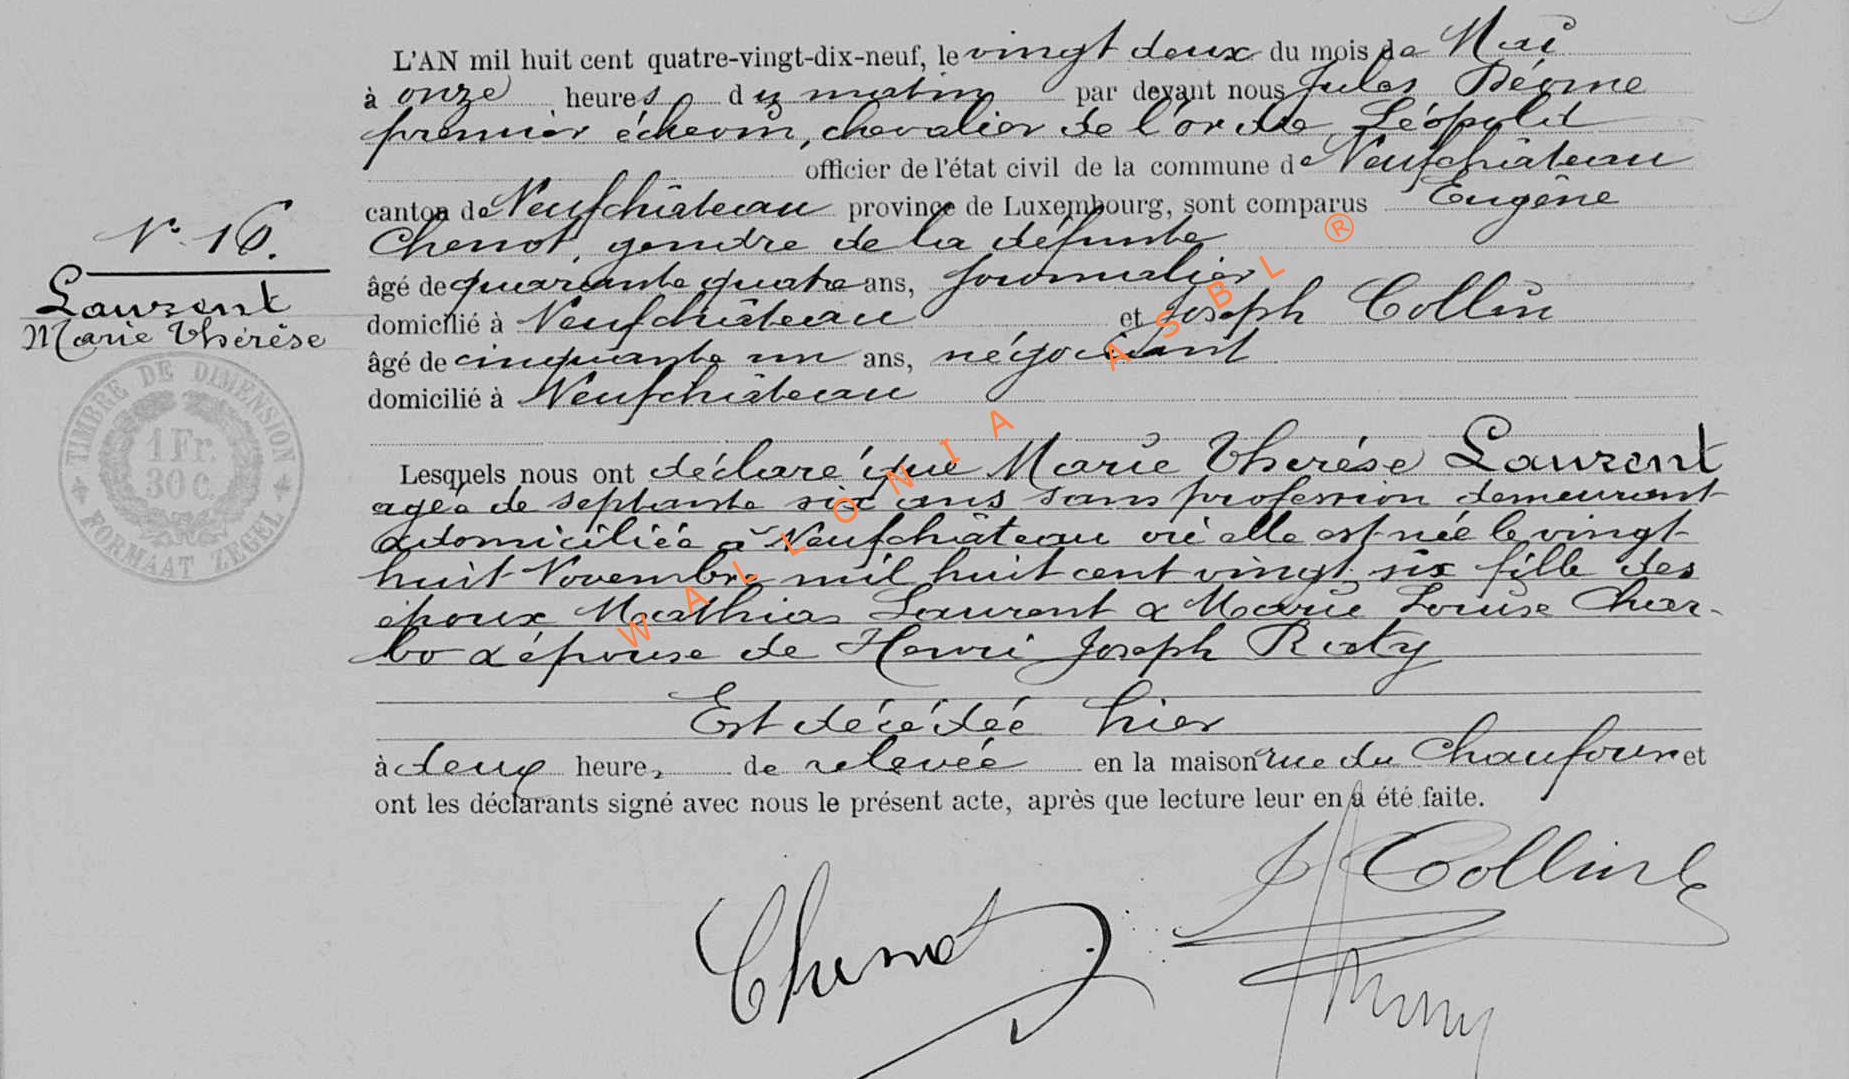 L'AN mil huit cent quatre-vingt-dix-neuf, le vingt deux du mois de Mai
à onze heures du matin par devant nous Jules
premier échevin, chevalier de l'or de Léopold
officier de l'état civil de la commune de Neufchâteau
canton de Neufchâteau province de Luxembourg, sont comparus Eugène
Chenot, gendre de la défunte
âgé de quarante quatre ans, journalier
domicilié à Neufchâteau et Joseph Collin
âgé de cinquante un ans, négociant
domicilié à Neufchâteau
N° 16.
Laurent
Marie Thérèse
TIMBRE DE DIMENSION
1 Fr.
30 C.
FORMAAT ZEGEL
Lesquels nous ont déclaré que Marie Thérése Laurent
agée de septante six ans sans profession demeurant
& domiciliée à Neufchâteau où elle est née le vingt
huit Novembre mil huit cent vingt six fille des
époux Mathias Laurent & Marie Louise Char-
lo & épouse de Henri Joseph Raty
Est décédée hier
à deux heures de relevée en la maison rue du Chaufour et
ont les déclarants signé avec nous le présent acte, après que lecture leur en a été faite.
Chenot
J Collin
WALLONIA ASBL ®